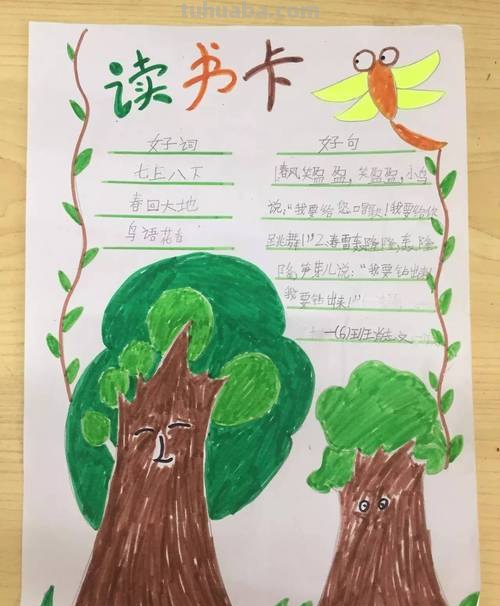 tuhuaba.com
读书卡
好词
七上八下
春回大地
鸟语花香
好句
1春风笑盈盈,笑盈盈,小鸟
说:“我要给您唱歌!我要给你
跳舞!”2.春雷轰隆隆,轰隆
隆,笋芽儿说:“我要钻出来!
我要钻出来!”
一(6)班